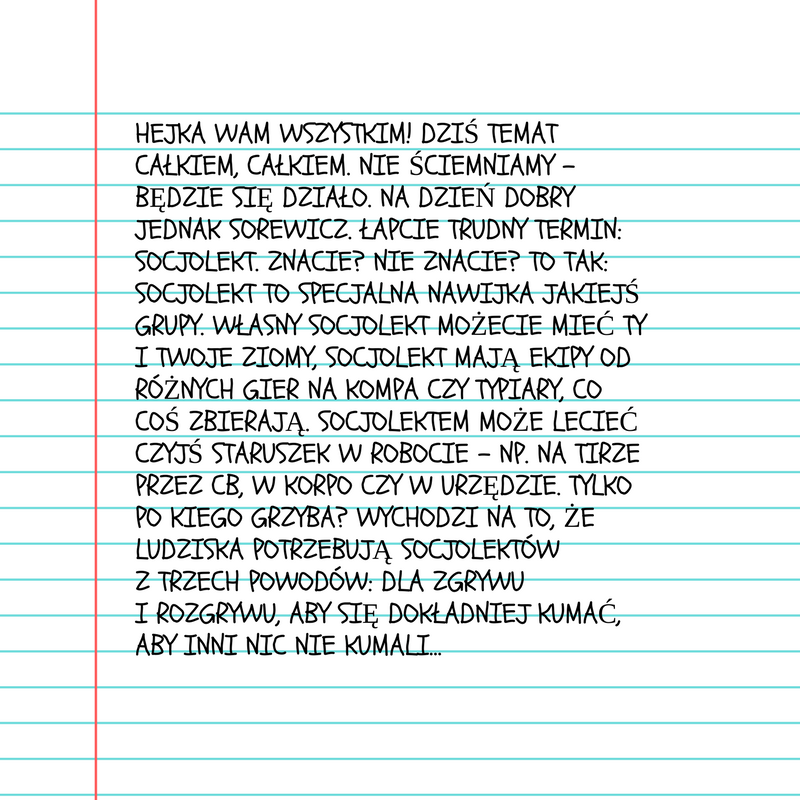 HEJKA WAM WSZYSTKIM! DZIŚ TEMAT
CAŁKIEM, CAŁKIEM. NIE ŚCIEMNIAMY –
BĘDZIE SIĘ DZIAŁO. NA DZIEŃ DOBRY
JEDNAK SOREWICZ. ŁAPCIE TRUDNY TERMIN:
SOCJOLEKT. ZNACIE? NIE ZNACIE? TO TAK:
SOCJOLEKT TO SPECJALNA NAWIJKA JAKIEJŚ
GRUPY. WŁASNY SOCJOLEKT MOŻECIE MIEĆ TY
I TWOJE ZIOMY, SOCJOLEKT MAJĄ EKIPY OD
RÓŻNYCH GIER NA KOMPA CZY TYPIARY, CO
COŚ ZBIERAJĄ. SOCJOLEKTEM MOŻE LECIEĆ
CZYJŚ STARUSZEK W ROBOCIE – NP. NA TIRZE
PRZEZ CB, W KORPO CZY W URZĘDZIE. TYLKO
PO KIEGO GRZYBA? WYCHODZI NA TO, ŻE
LUDZISKA POTRZEBUJĄ SOCJOLEKTÓW
Z TRZECH POWODÓW: DLA ZGRYWU
I ROZGRYWU, ABY SIĘ DOKŁADNIEJ KUMAĆ,
ABY INNI NIC NIE KUMALI...